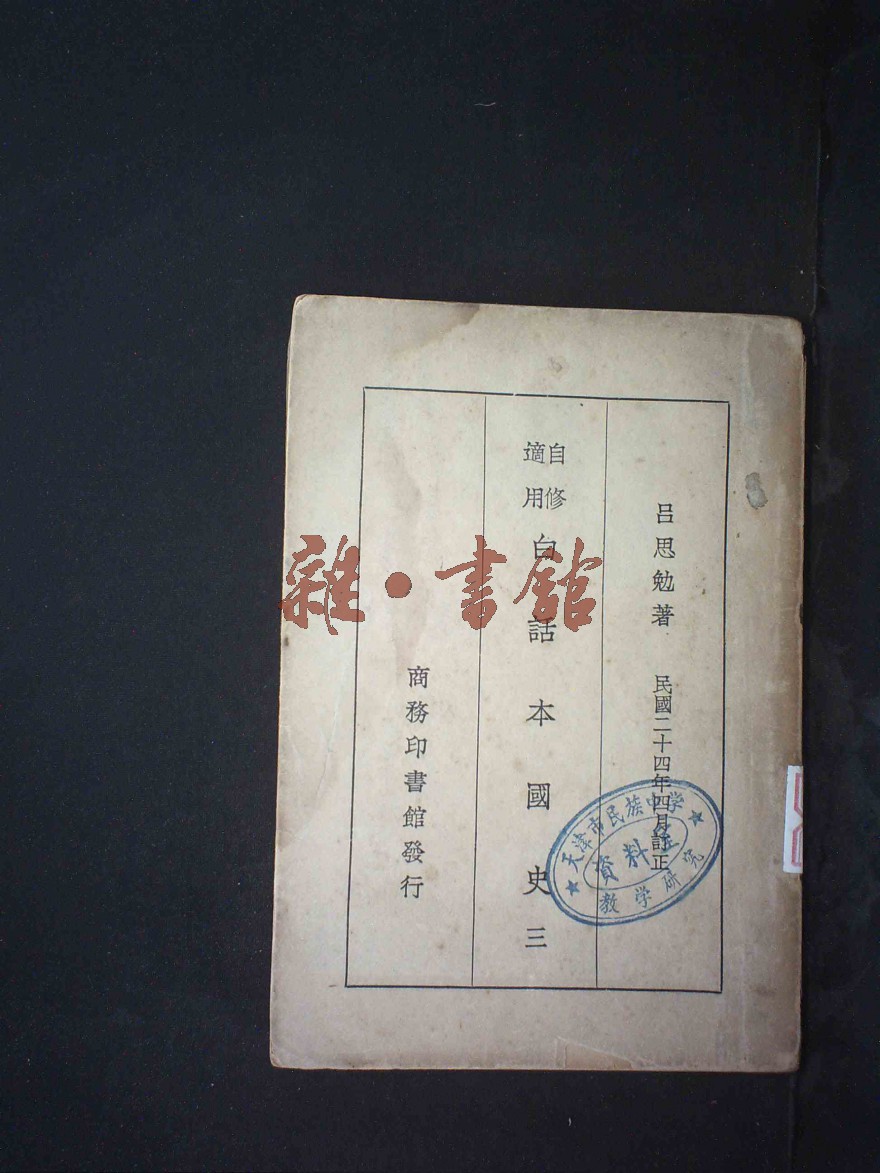 呂思勉著 民國二十四年四月訂正
自修
適用
白話本國史 三
商務印書館發行
雜·書館
天津市民族中学
資料室
教学研究